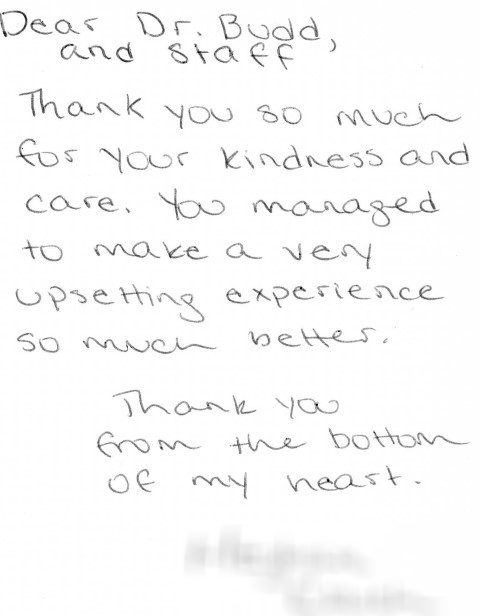 Dear Dr. Budd,
and staff
Thank you so much
for your kindness and
care. You managed
to make a very
upsetting experience
so much better.
Thank you
from the bottom
of my heart.